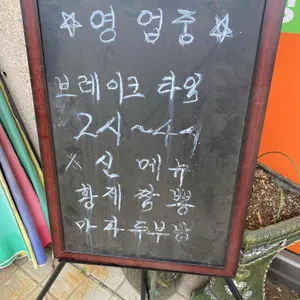 ☆영업중☆
브레이크 타임
2시~4시
※신메뉴
황제짬뽕
마파두부밥